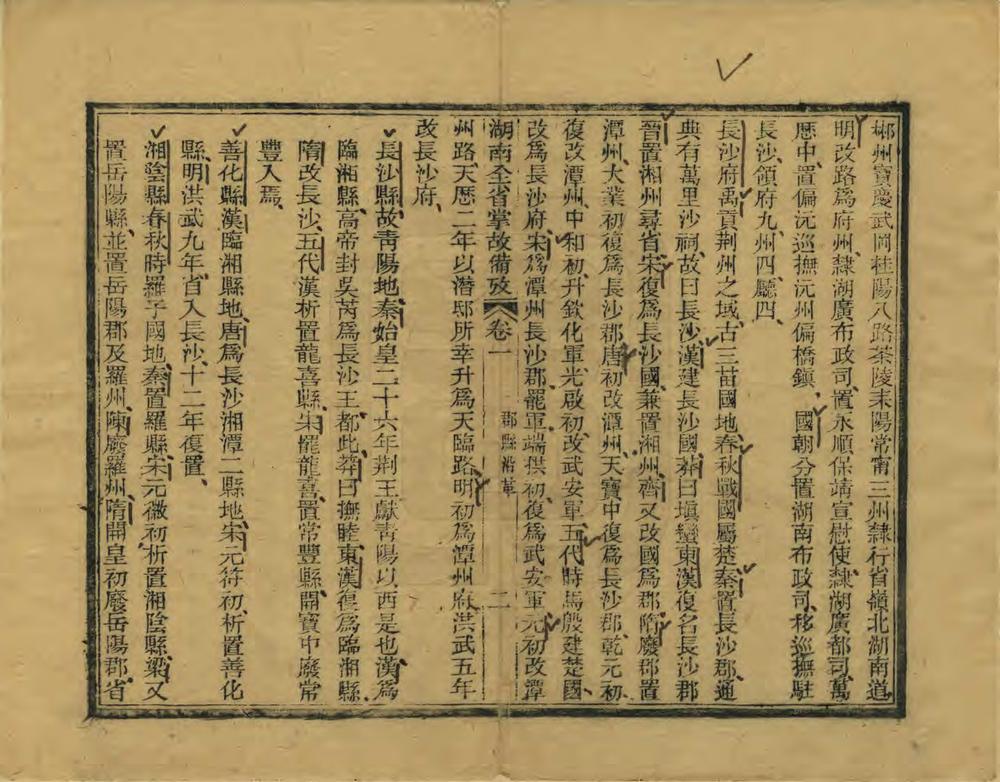 郴州寶慶武岡桂陽八路茶陵耒陽常甯三州隸行省嶺北湖南道
明改路為府州隸湖廣布政司置永順保靖宣慰使隸湖廣都司萬
歷中置偏沅巡撫沅州偏橋鎮　國朝分置湖南布政司移巡撫駐
長沙領府九州四廳四
長沙府禹貢荆州之域古三苗國地春秋戰國屬楚秦置長沙郡通
典有萬里沙祠故曰長沙漢建長沙國莽曰塡蠻東漢復名長沙郡
晉置湘州尋省宋復爲長沙國兼置湘州齊又改國爲郡隋廢郡置
潭州大業初復爲長沙郡唐初改潭州天寶中復爲長沙郡乾元初
復改潭州中和初升欽化軍光啟初改武安軍五代時馬殷建楚國
改爲長沙府宋爲潭州長沙郡罷軍端拱初復爲武安軍元初改潭
湖南全省掌故備攷　卷一　郡縣沿革　二
州路天歷二年以潛邸所幸升爲天臨路明初爲潭州府洪武五年
改長沙府
長沙縣故靑陽地秦始皇二十六年荆王獻靑陽以西是也漢爲
臨湘縣高帝封吳芮爲長沙王都此莽曰撫睦東漢復爲臨湘縣
隋改長沙五代漢析置龍喜縣宋罷龍喜置常豐縣開寶中廢常
豐入焉
善化縣漢臨湘縣地唐爲長沙湘潭二縣地宋元符初析置善化
縣明洪武九年省入長沙十二年復置
湘陰縣春秋時羅子國地秦置羅縣宋元徽初析置湘陰縣梁又
置岳陽縣並置岳陽郡及羅州陳廢羅州隋開皇初廢岳陽郡省